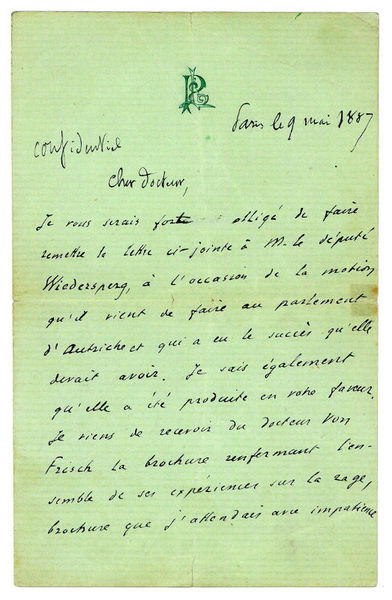 Paris le 9 mai 1887
Confidentiel
Cher docteur,
Je vous serais fort obligé de faire
remettre la lettre ci-jointe à M. le député
Wiedersperg, à l'occasion de la motion
qu'il vient de faire au parlement
d'Autriche et qui a eu le succès qu'elle
devait avoir. Je sais également
qu'elle a été produite en votre faveur.
Je viens de recevoir du docteur Von
Frisch la brochure renfermant l'en-
semble de ses expériences sur la rage,
brochure que j'attendais avec impatience